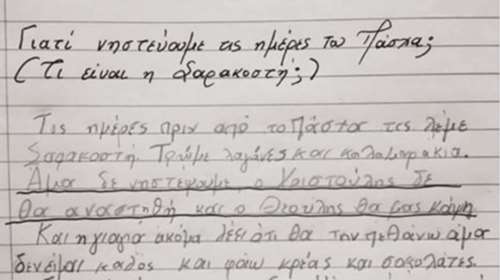 Γιατί νηστεύουμε τις ημέρες του Πάσχα;
(Τι είναι η Σαρακοστή;)
Τις ημέρες πριν από το Πάσχα τις λέμε
Σαρακοστή. Τρώμε λαγάνες και καλαμαράκια.
Άμα δε νηστέψουμε, ο Χριστούλης δε
θα αναστηθή και ο Θεούλης θα μας κάψη
Και η γιαγιά ακόμα λέει ότι θα την πεθάνω άμα
δεν είμαι καλός και φάω κρέας και σοκολάτες.